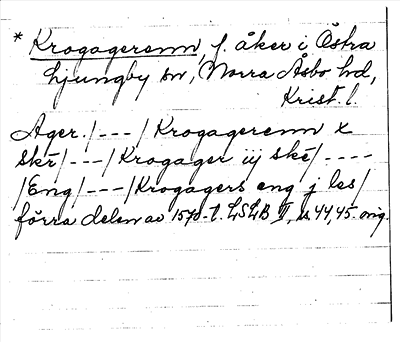 * Krogagerenn, f. åker i Östra
Ljungby sn, Norra Åsbo hd,
Krist. l.
Ager. /---/ Krogagerenn x
skē /---/ Krogager iij skē /----
/Eng /---/ Krogagers eng j les /
förra delen av 1570-t. LSLB II, s. 44, 45. orig.